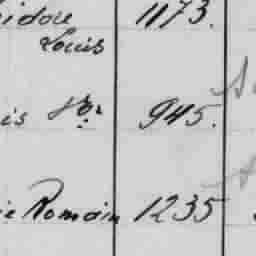 idore 1173.
Louis
is Sr. 945.
ie Romain 1235